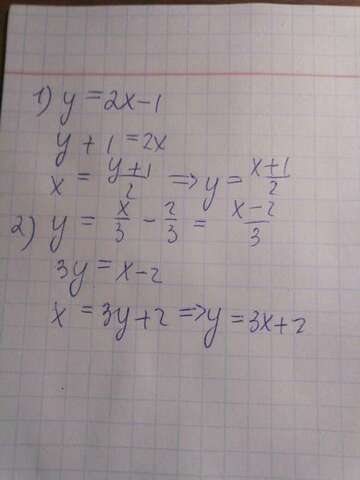 1) y = 2x-1
y + 1 = 2x
x = \frac{y+1}{2} => y = \frac{x+1}{2}
2) y = \frac{x}{3} - \frac{2}{3} = \frac{x-2}{3}
3y = x-2
x = 3y+2 => y = 3x+2